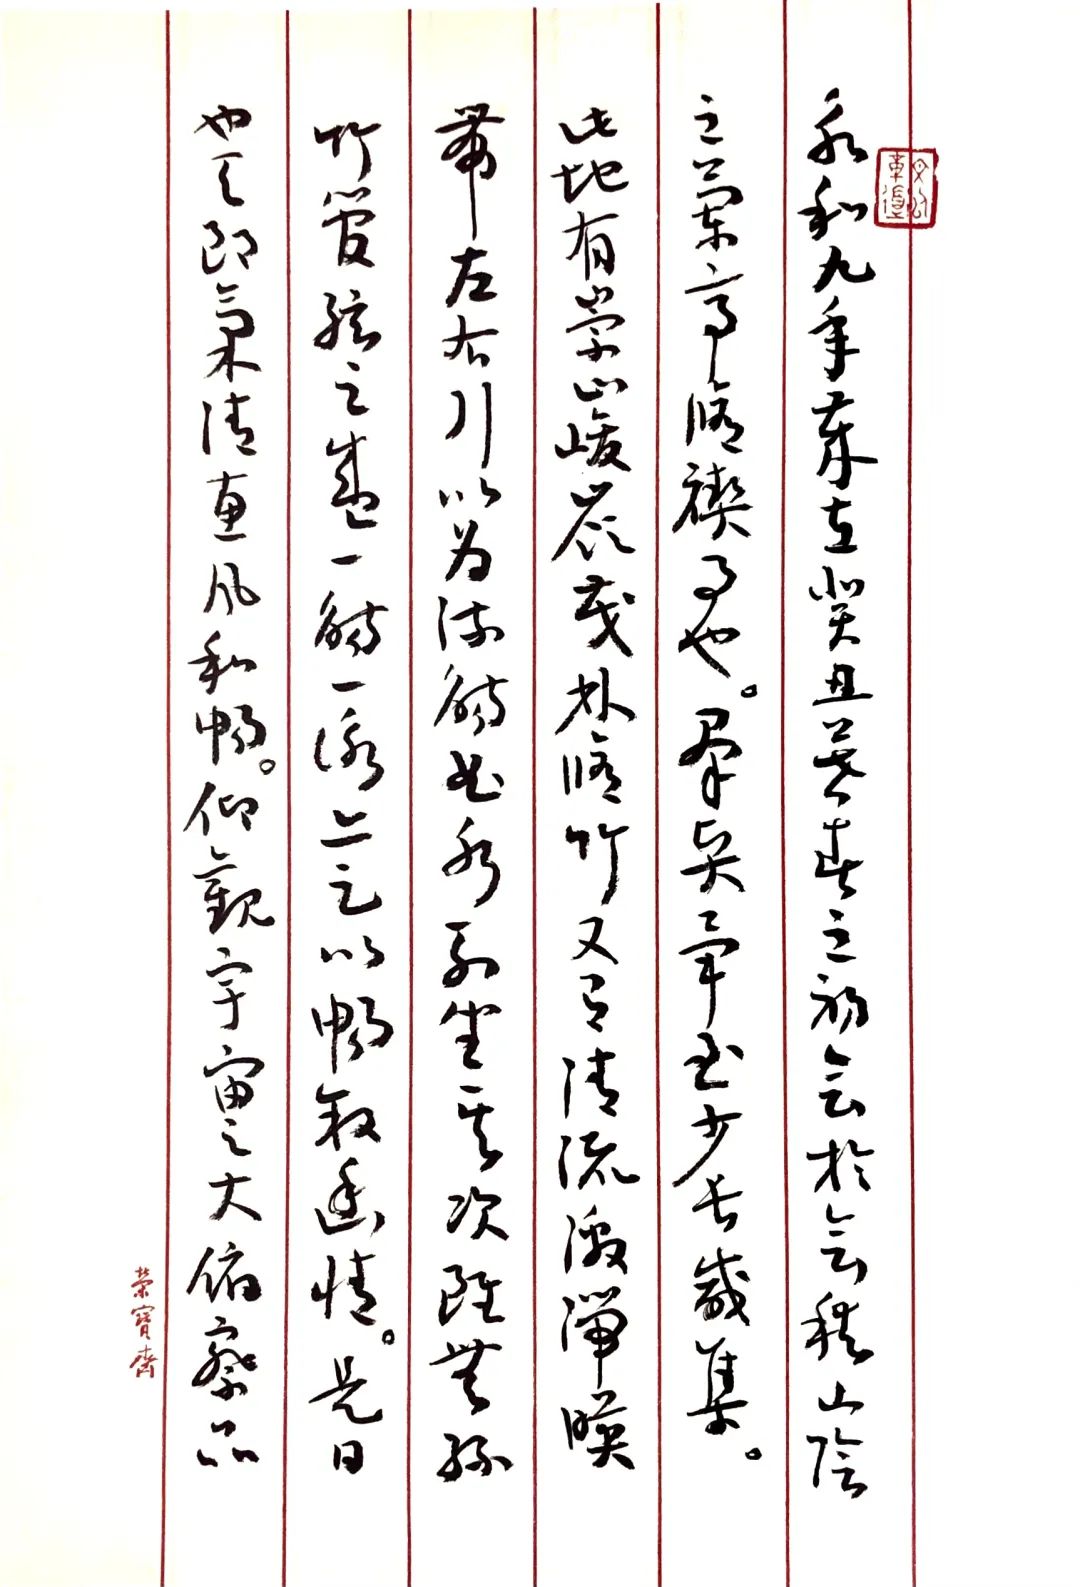 永和九年歲在癸丑暮春之初會於會稽山陰
之蘭亭脩禊事也。羣賢畢至少長咸集。
此地有崇山峻嶺茂林脩竹又有清流激湍暎
帶左右引以為流觴曲水列坐其次雖無絲
竹管弦之盛一觴一詠亦足以暢叙幽情。是日
也天朗氣清惠風和暢。仰觀宇宙之大俯察品
榮寶齋